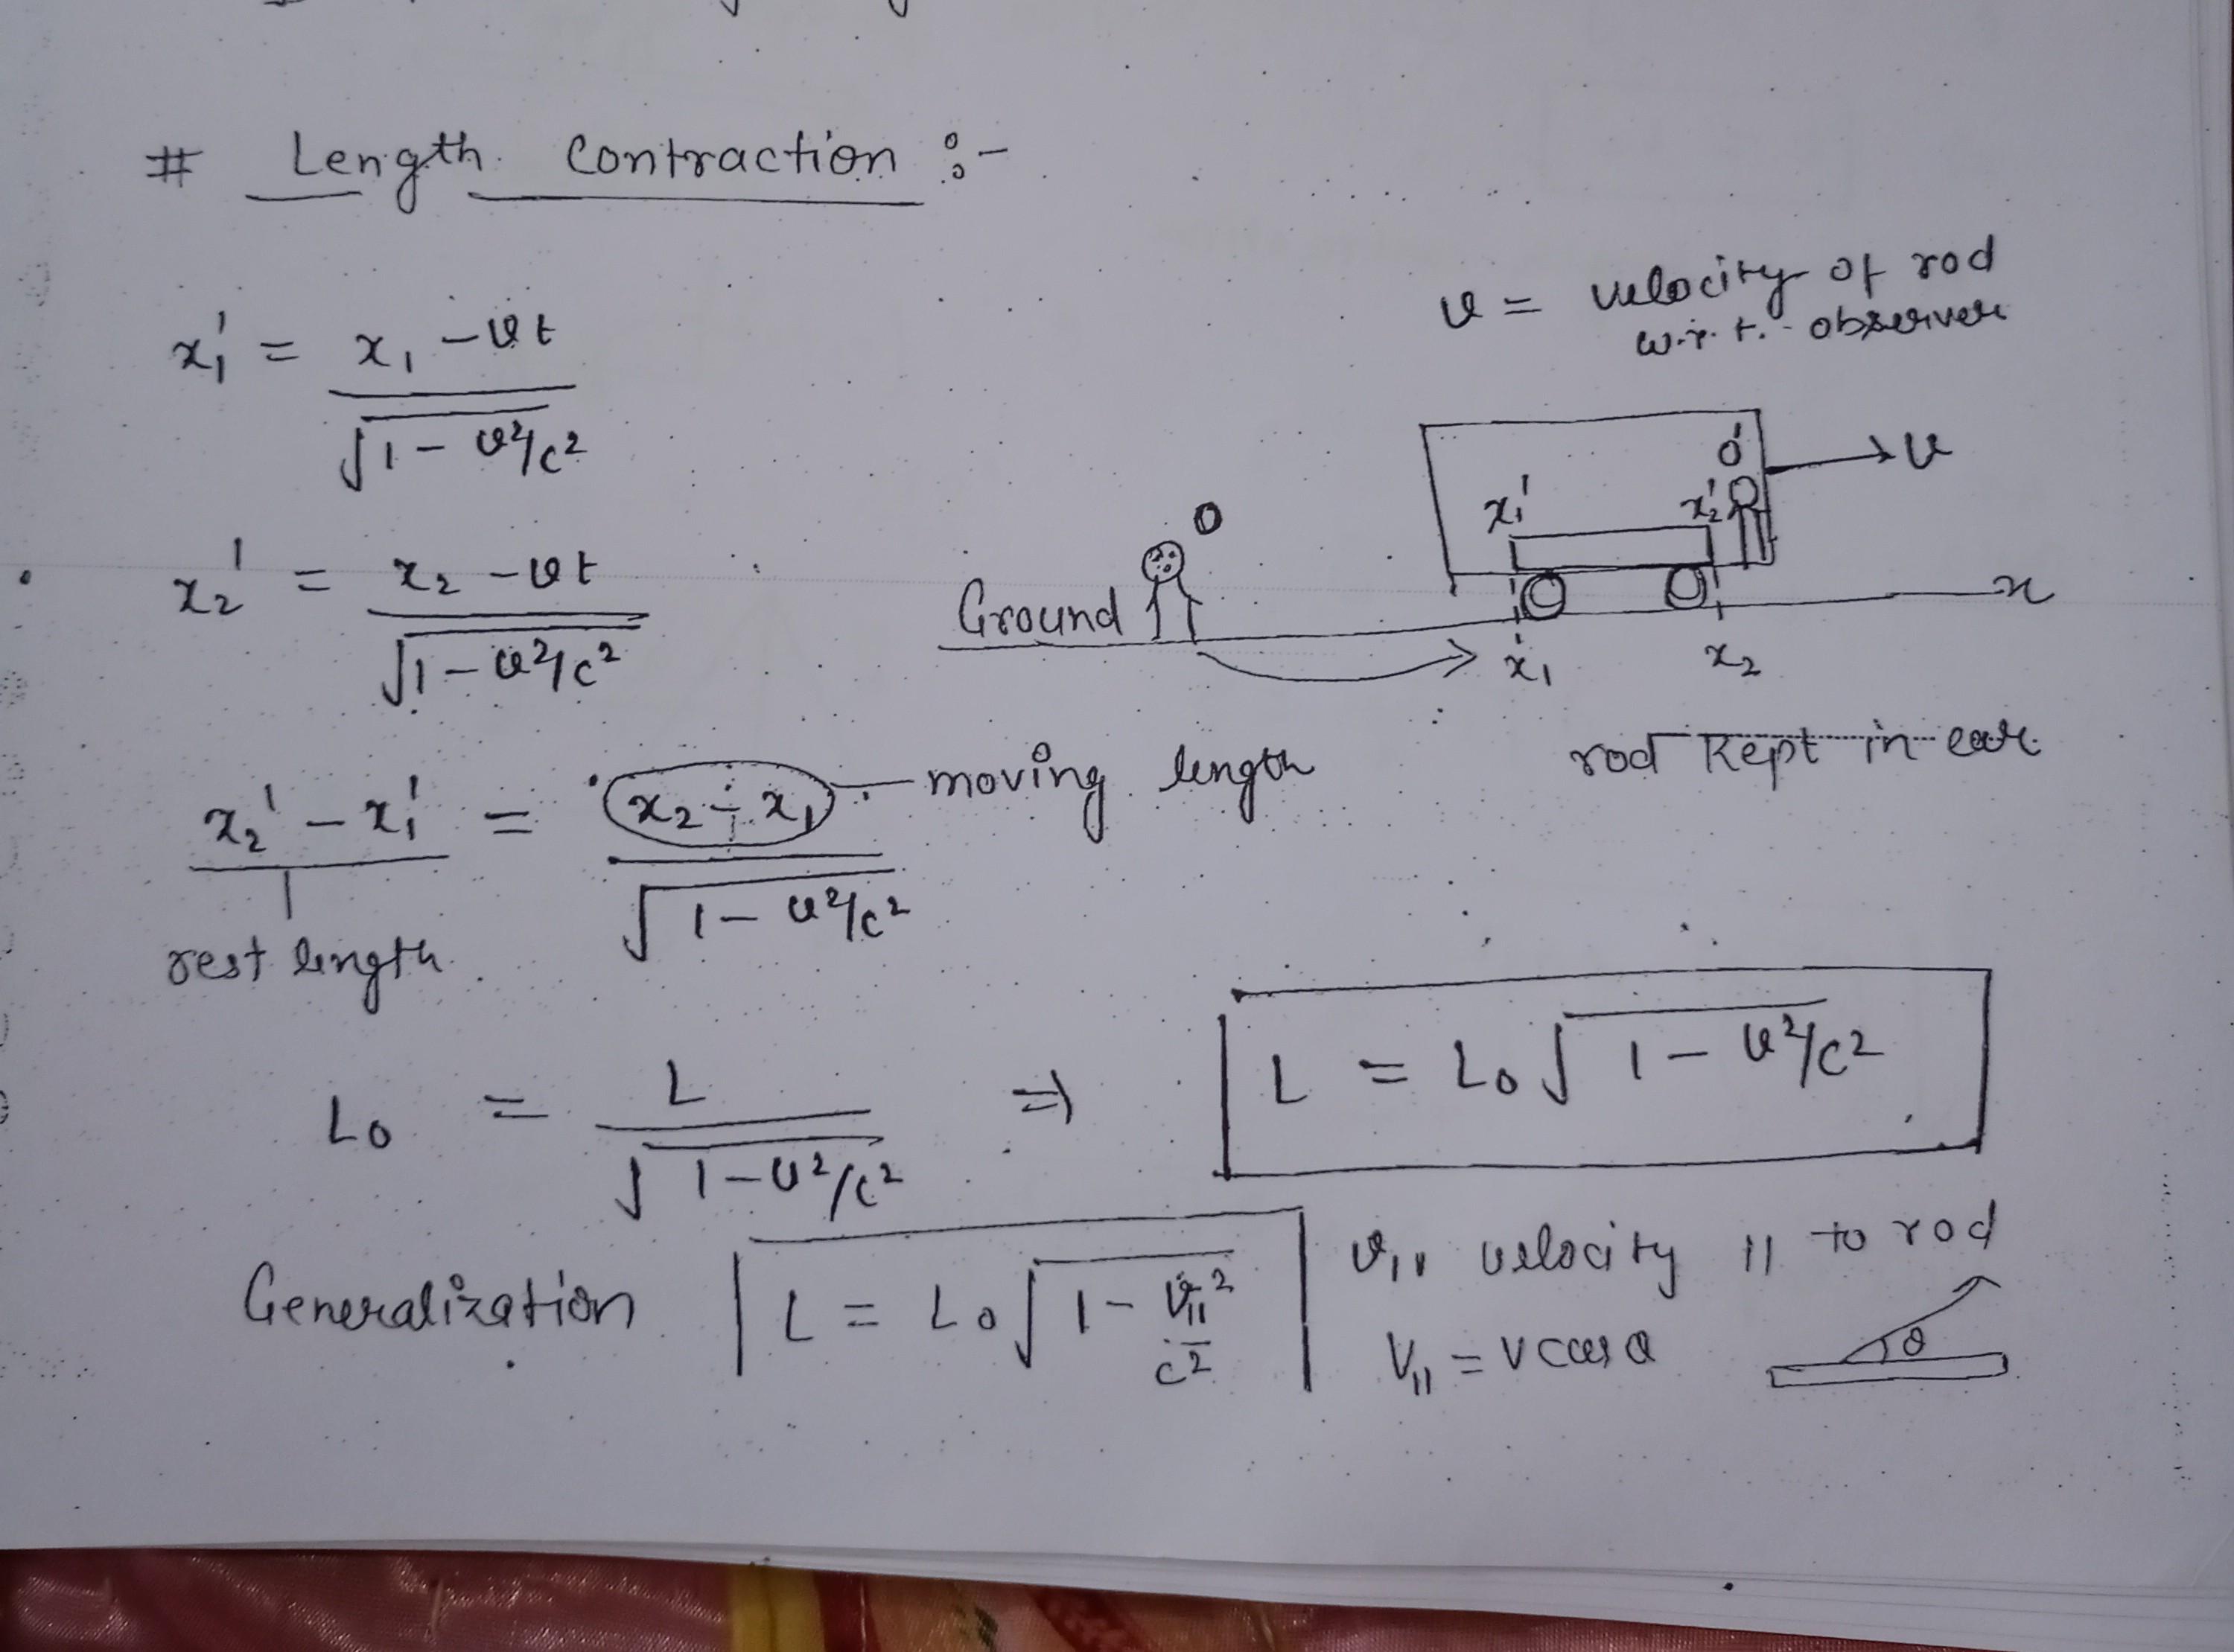 # Length Contraction :-
x₁' = (x₁ - vt) / √(1 - v²/c²)
v = velocity of rod
w.r.t. observer
x₂' = (x₂ - vt) / √(1 - v²/c²)
O' → v
x₁' x₂'
O
Ground
x
x₁ x₂
rod kept in car
x₂' - x₁' = (x₂ - x₁) / √(1 - v²/c²)
moving length
rest length
L₀ = L / √(1 - v²/c²) ⇒ L = L₀ √(1 - v²/c²)
Generalization L = L₀ √(1 - v∥²/c²)
v∥ velocity ∥ to rod
V∥ = v cos θ
θ